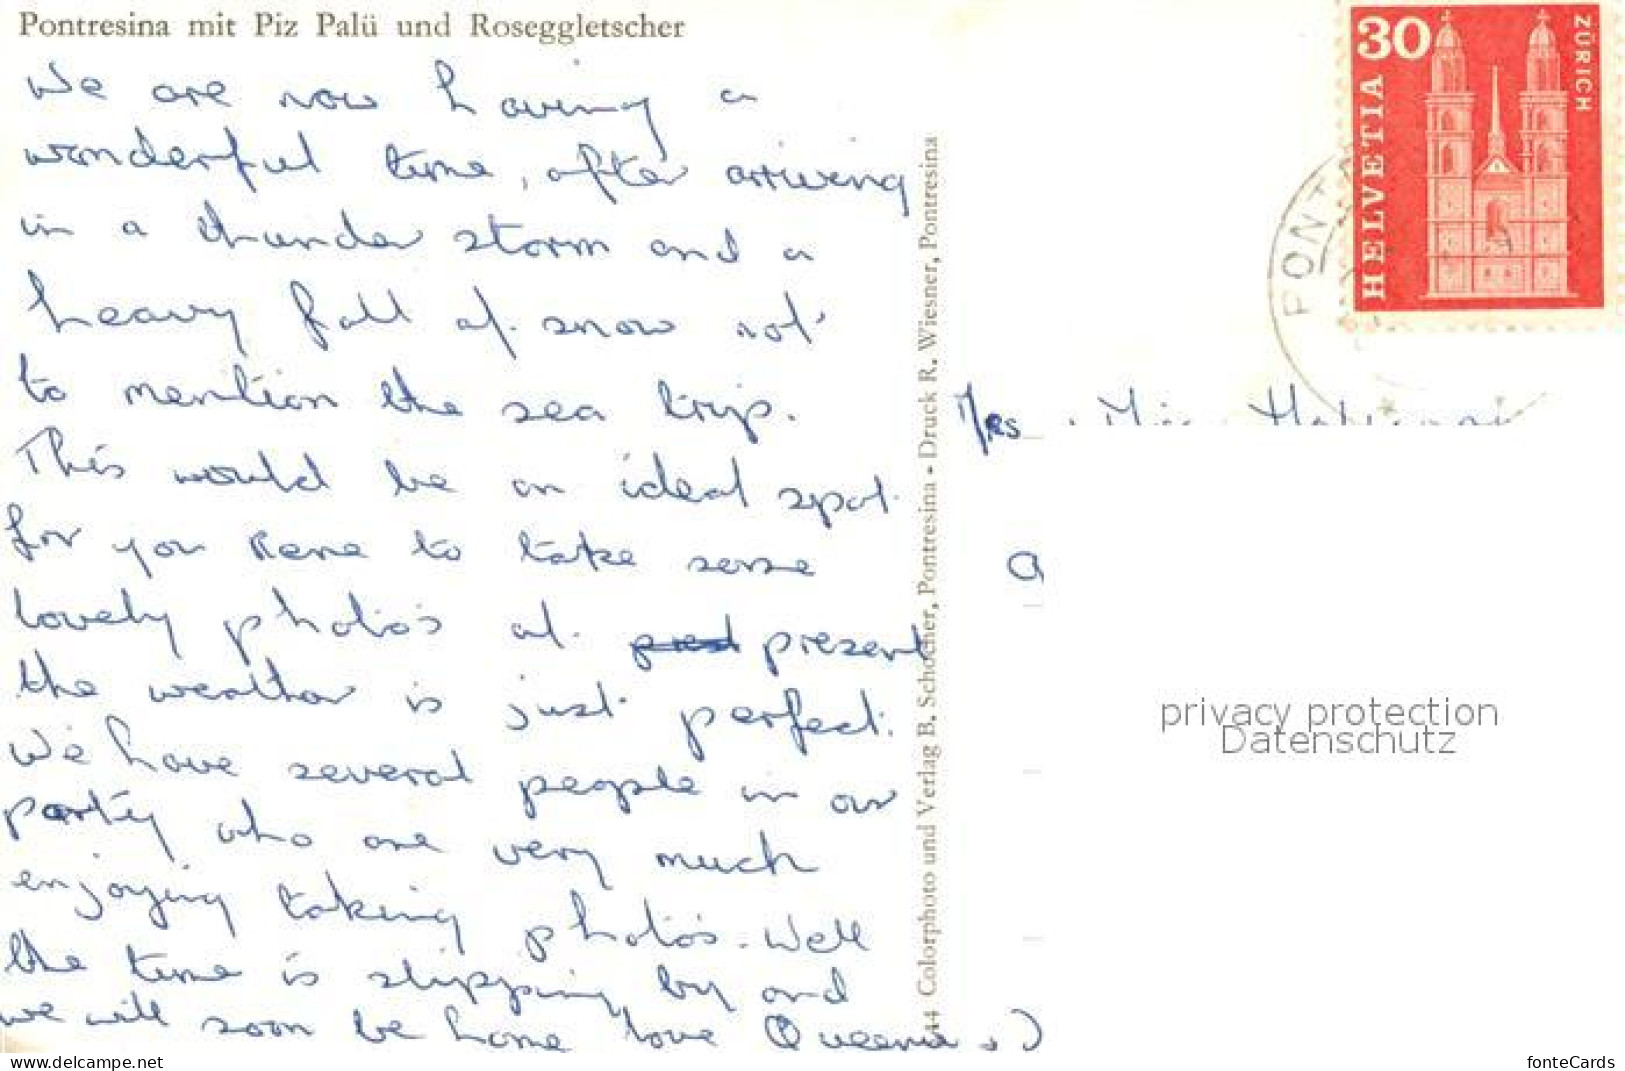 Pontresina mit Piz Palü und Roseggletscher
We are now having a
wonderful time, after arriving
in a thunder storm and a
heavy fall of snow not
to mention the sea trip.
This would be an ideal spot
for you Rene to take some
lovely photo's at present
the weather is just perfect.
We have several people in our
party who are very much
enjoying taking photo's. Well
the time is slipping by and
we will soon be home love Queenie
44 Colorphoto und Verlag B. Schocher, Pontresina - Druck R. Wiesner, Pontresina
30
HELVETIA
ZÜRICH
PONT
privacy protection
Datenschutz
www.delcampe.net
fonteCards